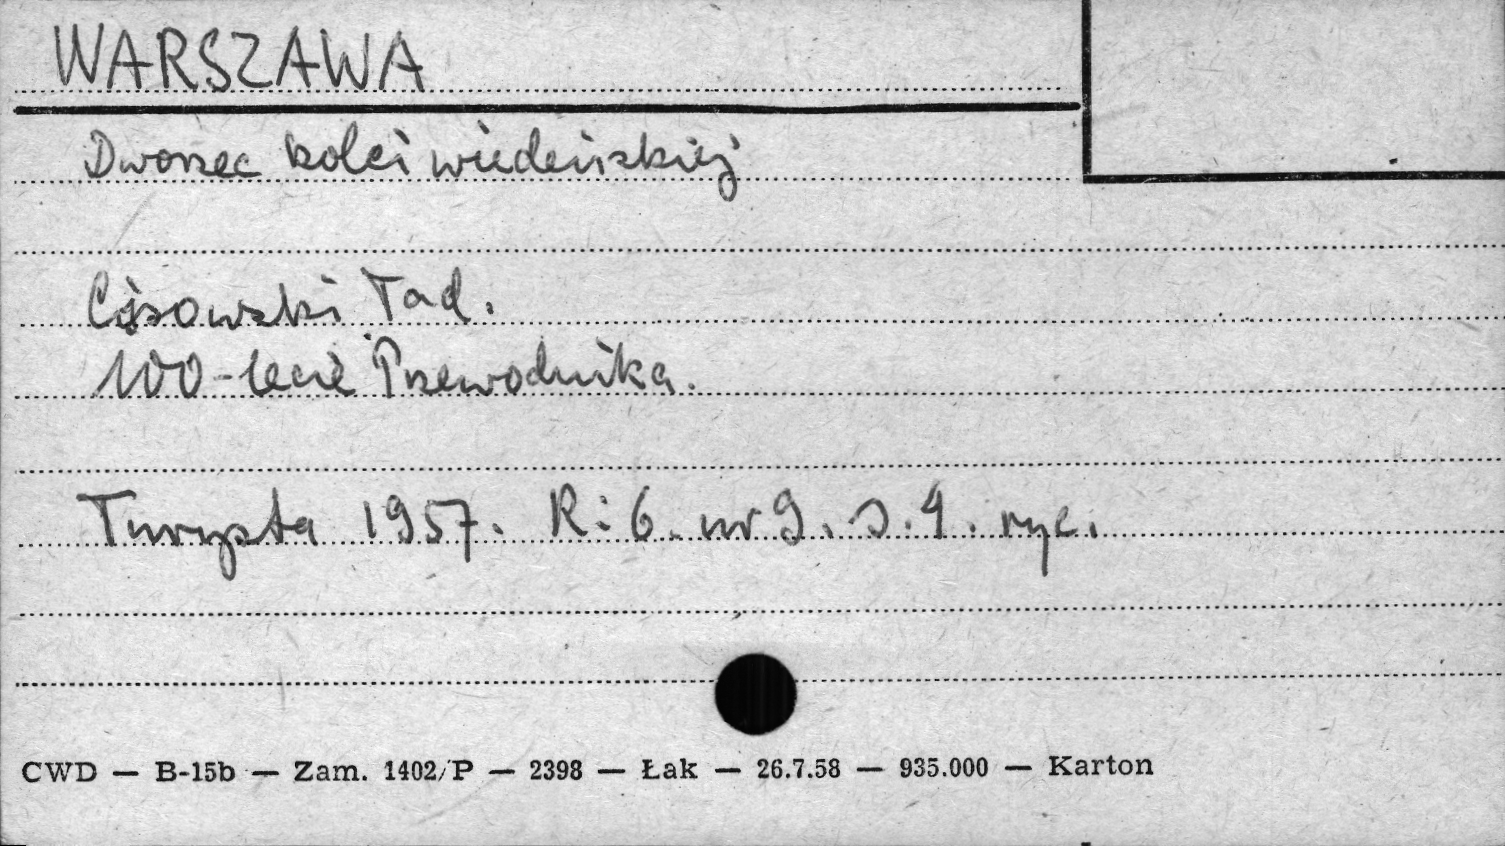 WARSZAWA
Dworzec kolei wiedeńskiej
Cisowski Tad.
100-lecie Przewodnika.
Turysta 1957. R: 6. nr 9. s. 4. ryc.
CWD — B-15b — Zam. 1402/P — 2398 — Łak — 26.7.58 — 935.000 — Karton